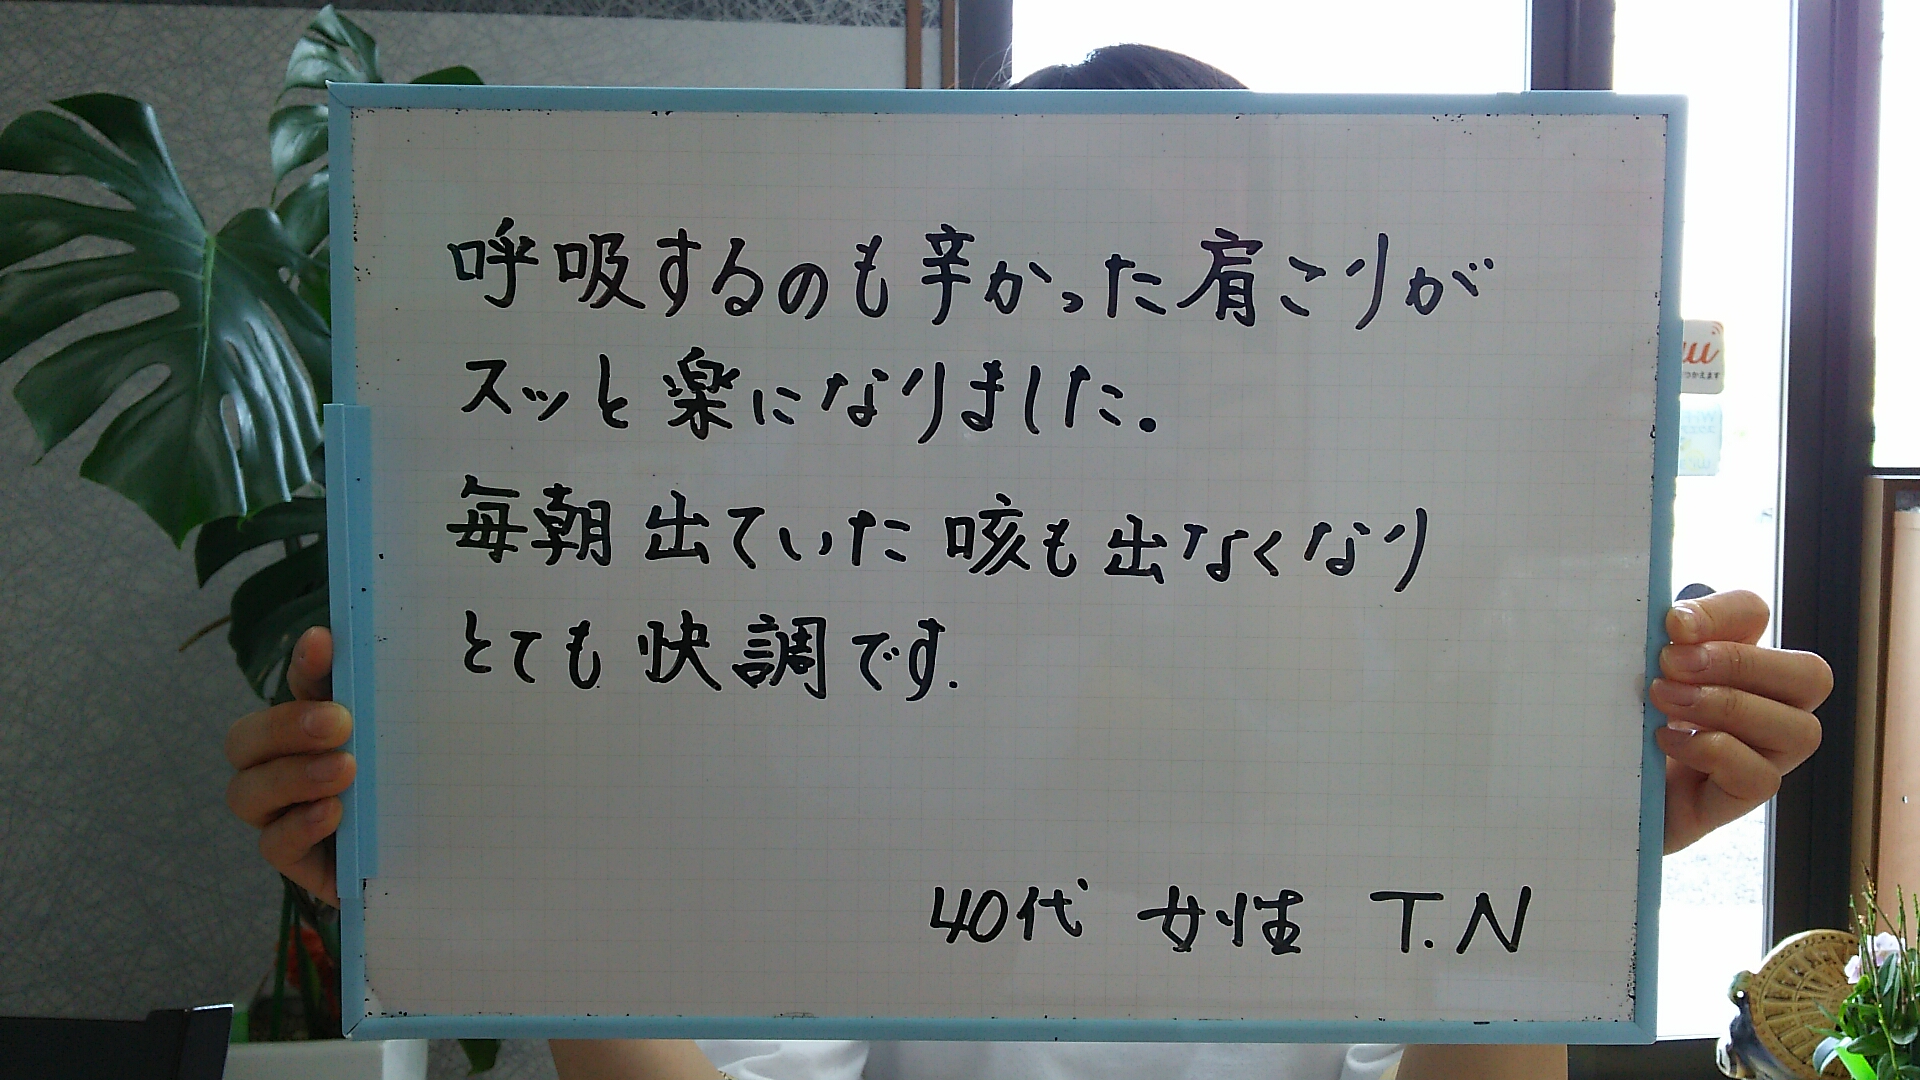 呼吸するのも辛かった肩こりが
スッと楽になりました。
毎朝出ていた咳も出なくなり
とても快調です.
40代 女性 T.N